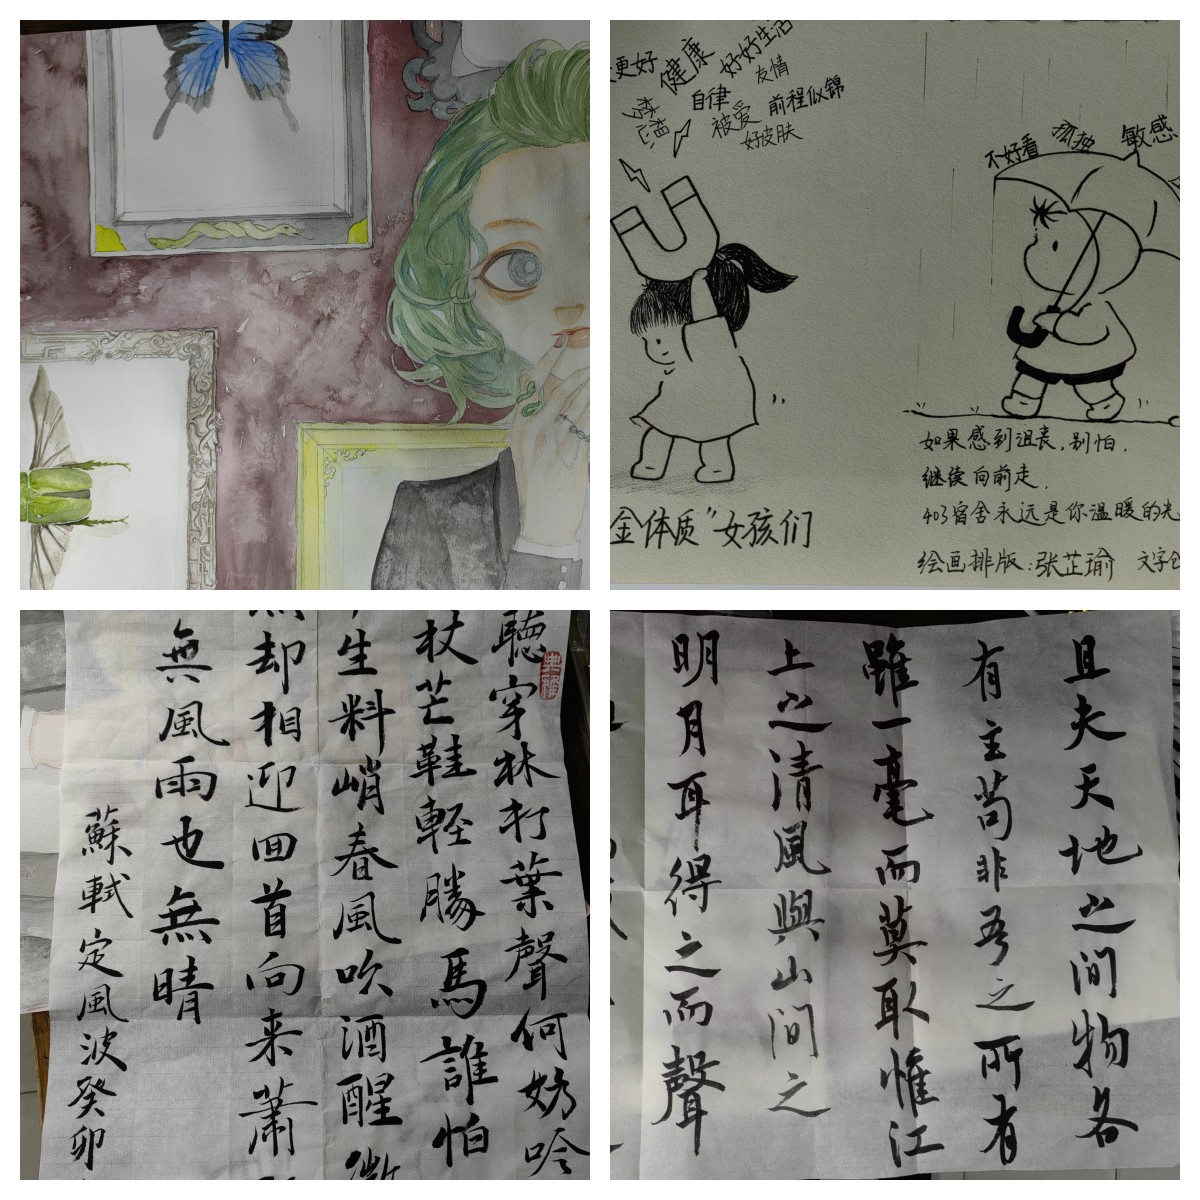 更好
健康
好好生活
友情
梦想
自律
被爱
前程似锦
好皮肤
金体质”女孩们
不好看
孤独
敏感
如果感到沮丧,别怕,
继续向前走,
403宿舍永远是你温暖的光
绘画排版:张芷瑜 文字
聽穿林打葉聲何妨吟
典雅
杖芒鞋輕勝馬誰怕
生料峭春風吹酒醒微
却相迎回首向来萧
無風雨也無晴
蘇軾定風波癸卯
且夫天地之间物各
有主苟非吾之所有
雖一毫而莫取惟江
上之清風與山间之
明月耳得之而聲